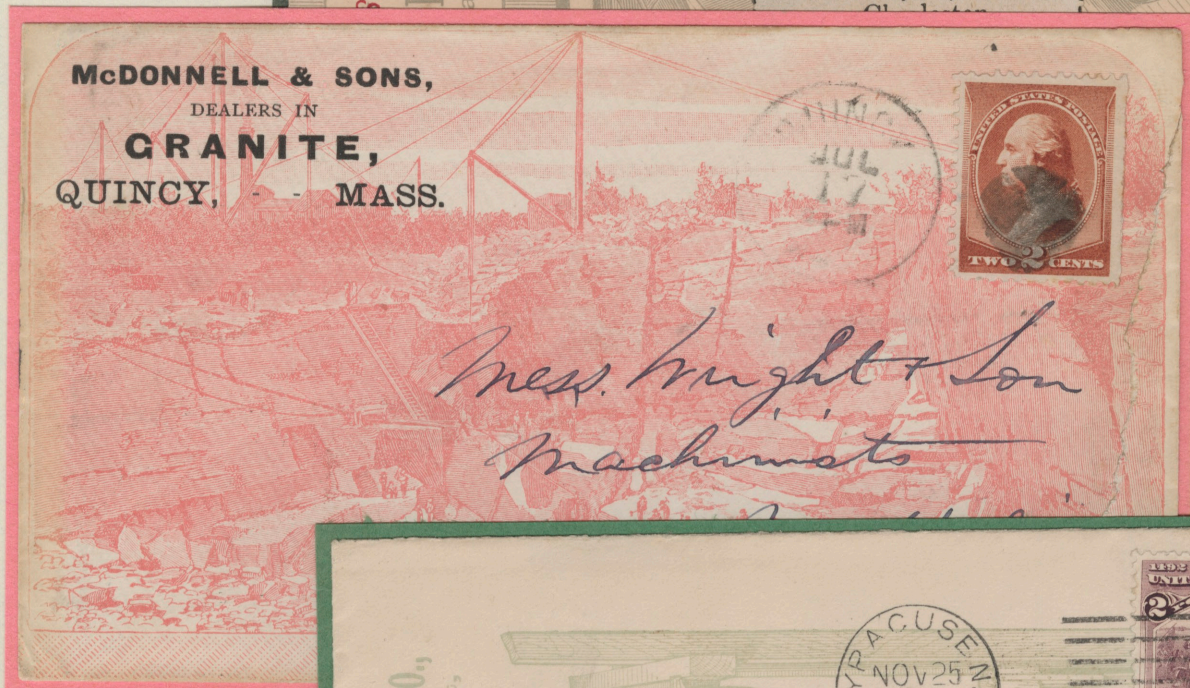 Charleston
McDONNELL & SONS,
DEALERS IN
GRANITE,
QUINCY, - - MASS.
QUINCY
JUL
17
UNITED STATES POSTAGE
TWO 2 CENTS
Mess. Wright & Son
Machinists
SYRACUSE N
NOV 25
1892
UNIT
2